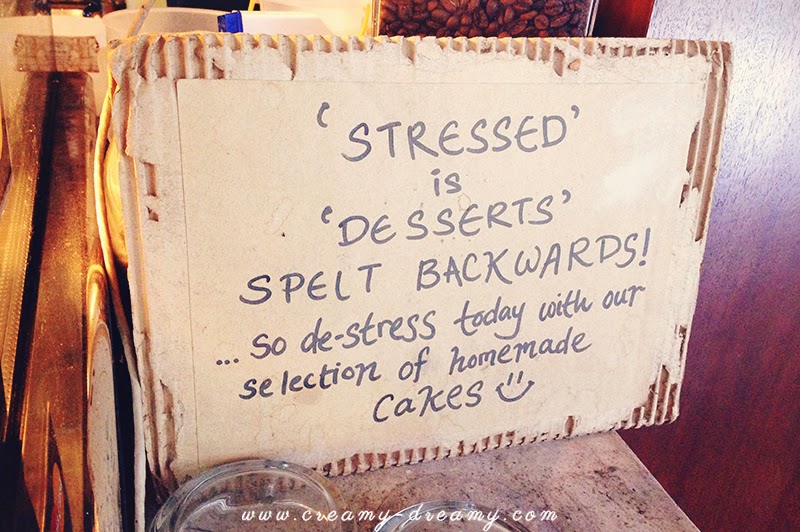 ‘STRESSED’
is
‘DESSERTS’
SPELT BACKWARDS!
... so de-stress today with our
selection of homemade
cakes
www.creamy-dreamy.com